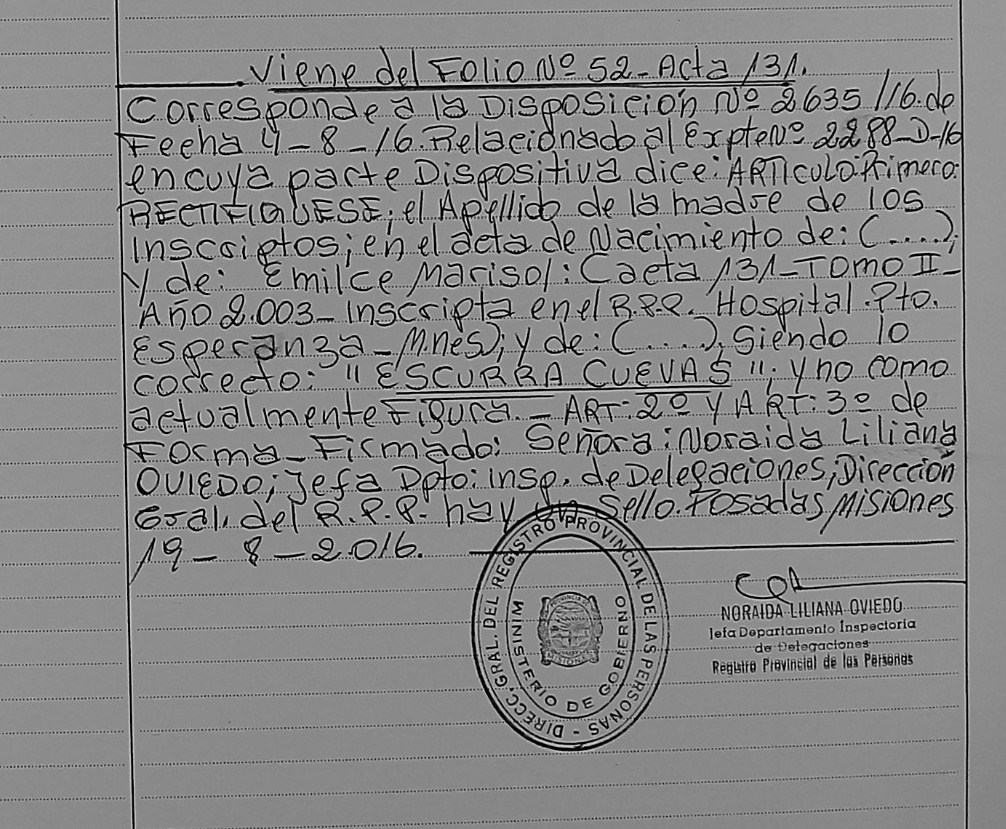 Viene del Folio Nº 52 - Acta 131.
Corresponde a la Disposición Nº 2635/16. de
Fecha 4-8-16. Relacionado al Expte Nº 2288-D-16
en cuya parte Dispositiva dice: ARTICULO Primero:
RECTIFIQUESE; el Apellido de la madre de los
Inscriptos; en el acta de Nacimiento de: (....);
y de: Emilce Marisol: (acta 131 - TOMO II -
Año 2.003 - Inscripta en el R.P.P. Hospital. Pto.
Esperanza - Mnes); y de: (....). Siendo lo
correcto: "ESCURRA CUEVAS"; y no como
actualmente Figura. - ART: 2º y ART: 3º de
Forma - Firmado: Señora: Noraida Liliana
OVIEDO; Jefa Dpto: Insp. de Delegaciones; Dirección
Gral. del R.P.P. hay un Sello. Posadas, Misiones
19 - 8 - 2.016.
DIRECC. GRAL. DEL REGISTRO PROVINCIAL DE LAS PERSONAS -
MINISTERIO DE GOBIERNO
NORAIDA LILIANA OVIEDO
Jefa Departamento Inspectoria
de Delegaciones
Registro Provincial de las Personas